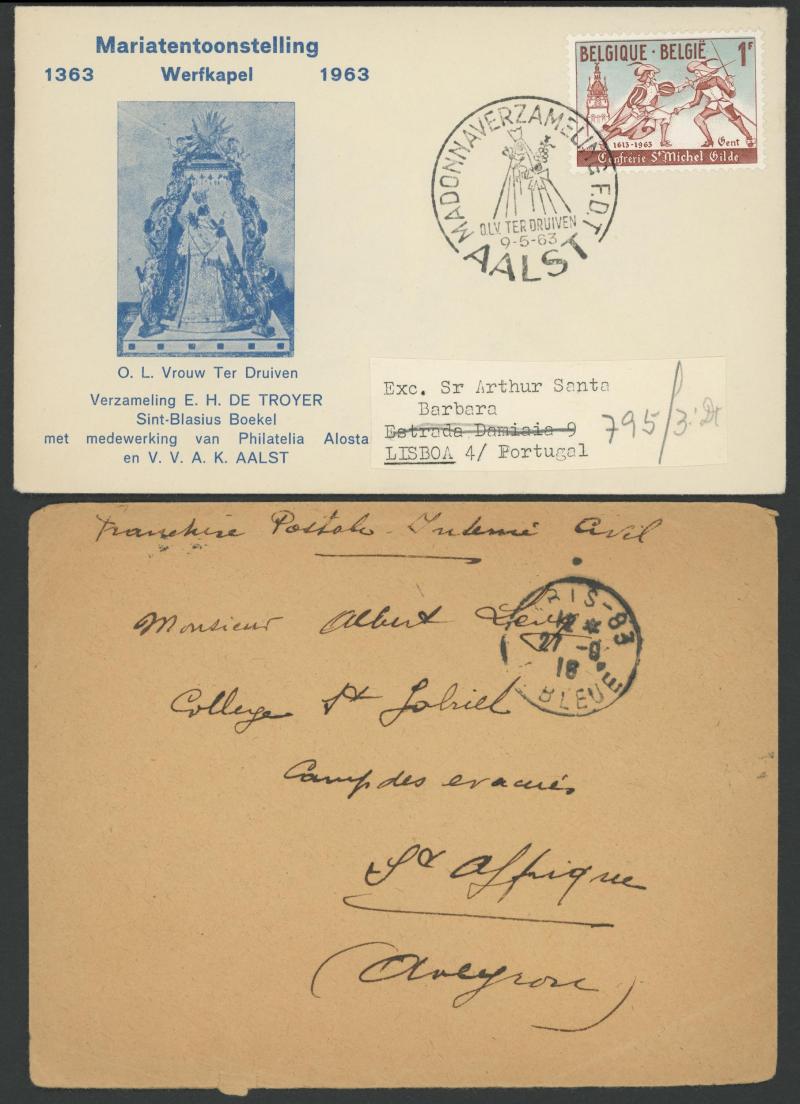 Mariatentoonstelling
1363 Werfkapel 1963
O. L. Vrouw Ter Druiven
Verzameling E. H. DE TROYER
Sint-Blasius Boekel
met medewerking van Philatelia Alosta
en V. V. A. K. AALST
MADONNAVERZAMELING E.D.T.
O.L.V. TER DRUIVEN
9-5-63
AALST
BELGIQUE · BELGIË 1F
1613-1963 Gent
Confrérie St Michel Gilde
Exc. Sr Arthur Santa
Barbara
Estrada Damiaia 9
LISBOA 4/ Portugal
795/3
Franchise Postale Interné Civil
Monsieur Albert Levy
College St Gabriel
Camp des evacués
St Affrique
(Aveyron)
RIS-83
27 -9
16
BLEUE